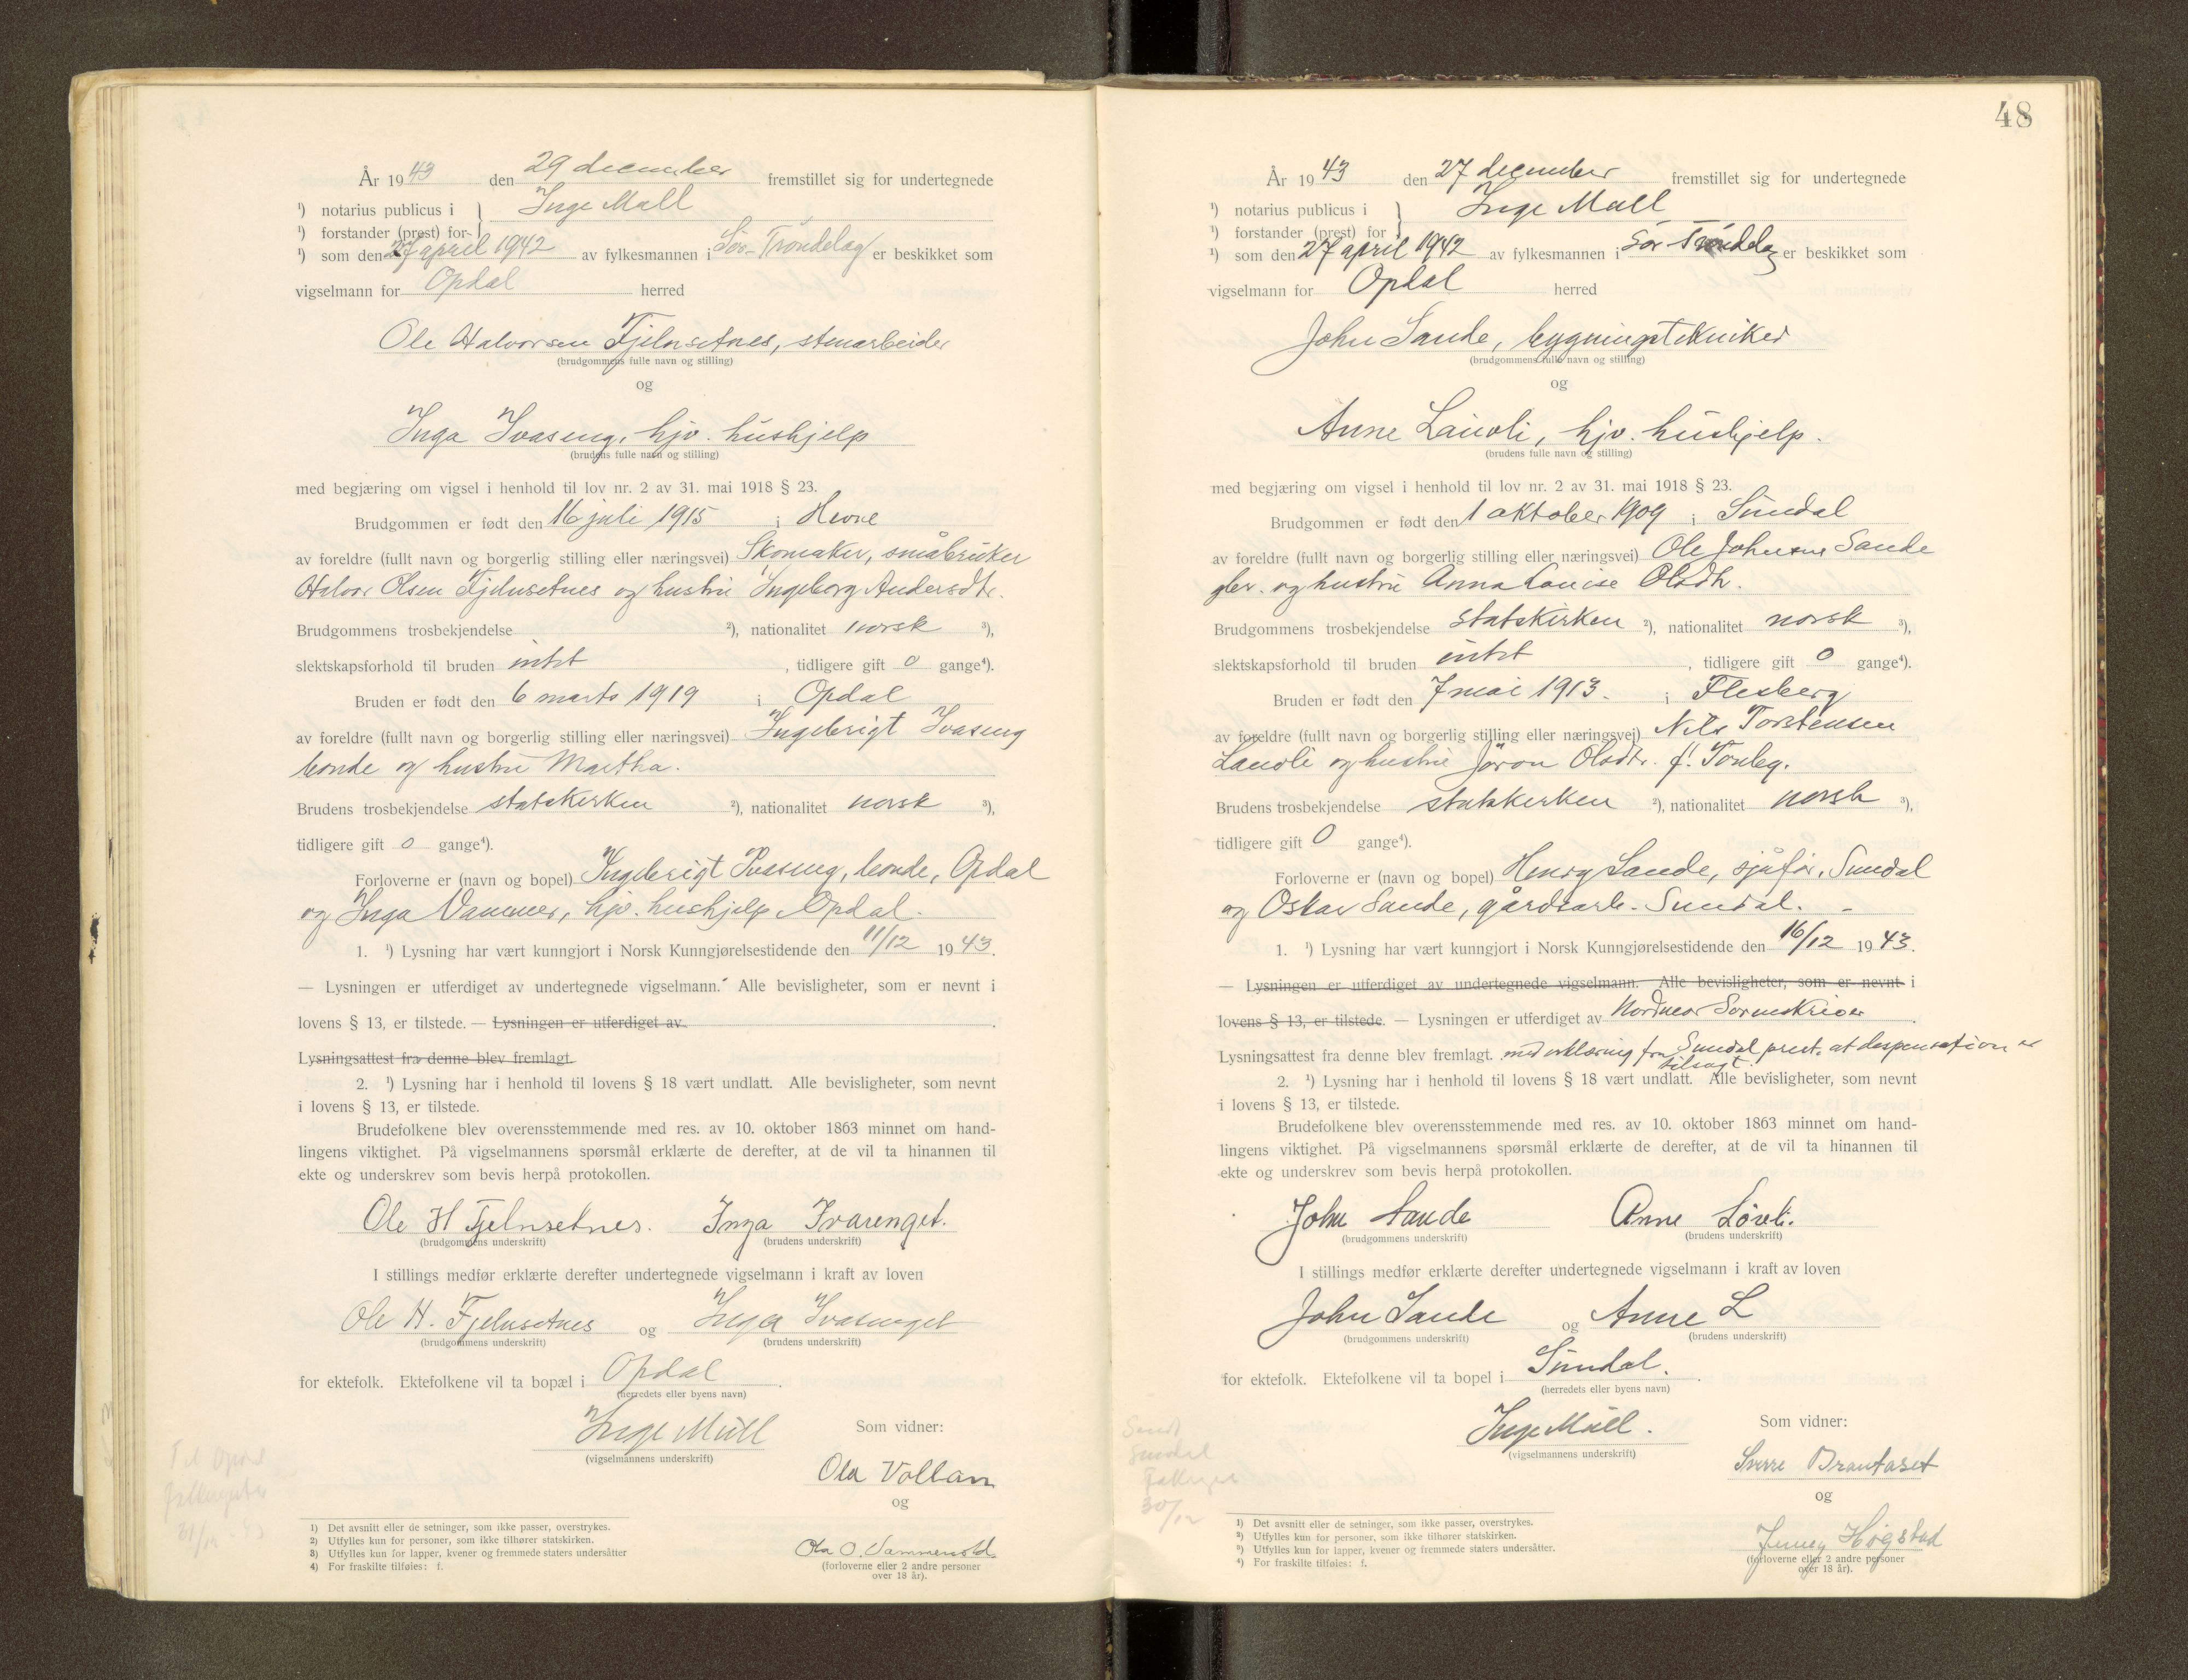 År 1943 den 29 december fremstillet sig for undertegnede
¹) notarius publicus i } Inge Mull
¹) forstander (prest) for
¹) som den 27 april 1942 av fylkesmannen i Sør-Trøndelag er beskikket som
vigselmann for Opdal herred
Ole Halvorsen Fjelnsetnes, stenarbeider
(brudgommens fulle navn og stilling)
og
Inga Ivaseng, hjv. hushjelp
(brudens fulle navn og stilling)
med begjæring om vigsel i henhold til lov nr. 2 av 31. mai 1918 § 23.
Brudgommen er født den 16 juli 1915 i Hevne
av foreldre (fullt navn og borgerlig stilling eller næringsvei) Skomaker, småbruker
Halvor Olsen Fjelnsetnes og hustru Ingeborg Andersdtr.
Brudgommens trosbekjendelse ²), nationalitet norsk ³),
slektskapsforhold til bruden intet , tidligere gift 0 gange⁴).
Bruden er født den 6 marts 1919 i Opdal
av foreldre (fullt navn og borgerlig stilling eller næringsvei) Ingebrigt Ivaseng
bonde og hustru Martha.
Brudens trosbekjendelse statskirken ²), nationalitet norsk ³),
tidligere gift 0 gange⁴).
Forloverne er (navn og bopel) Ingebrigt Ivaseng, bonde, Opdal
og Inga Vammer, hjv. hushjelp Opdal.
1. ¹) Lysning har vært kunngjort i Norsk Kunngjørelsestidende den 11/12 1943.
— Lysningen er utferdiget av undertegnede vigselmann. Alle bevisligheter, som er nevnt i
lovens § 13, er tilstede. — Lysningen er utferdiget av .
Lysningsattest fra denne blev fremlagt.
2. ¹) Lysning har i henhold til lovens § 18 vært undlatt. Alle bevisligheter, som nevnt
i lovens § 13, er tilstede.
Brudefolkene blev overensstemmende med res. av 10. oktober 1863 minnet om hand-
lingens viktighet. På vigselmannens spørsmål erklærte de derefter, at de vil ta hinannen til
ekte og underskrev som bevis herpå protokollen.
Ole H Fjelnsetnes. Inga Ivarenget.
(brudgommens underskrift) (brudens underskrift)
I stillings medfør erklærte derefter undertegnede vigselmann i kraft av loven
Ole H. Fjelnsetnes og Inga Ivasenget
(brudgommens underskrift) (brudens underskrift)
for ektefolk. Ektefolkene vil ta bopæl i Opdal .
(herredets eller byens navn)
Inge Mull Som vidner:
(vigselmannens underskrift)
Ola Vollan
og
Ola O.
(forloverne eller 2 andre personer
over 18 år).
Til Opdal
31/12 - 43
1) Det avsnitt eller de setninger, som ikke passer, overstrykes.
2) Utfylles kun for personer, som ikke tilhører statskirken.
3) Utfylles kun for lapper, kvener og fremmede staters undersåtter
4) For fraskilte tilføies: f.
48
År 1943 den 27 december fremstillet sig for undertegnede
¹) notarius publicus i } Inge Mull
¹) forstander (prest) for
¹) som den 27 april 1942 av fylkesmannen i Sør Trøndelag er beskikket som
vigselmann for Opdal herred
John Sande, bygningstekniker
(brudgommens fulle navn og stilling)
og
Anne Lauvli, hjv. hushjelp.
(brudens fulle navn og stilling)
med begjæring om vigsel i henhold til lov nr. 2 av 31. mai 1918 § 23.
Brudgommen er født den 1 oktober 1909 i Sundal
av foreldre (fullt navn og borgerlig stilling eller næringsvei) Ole Johnsen Sande
gbr. og hustru Anna Louise Olsdtr.
Brudgommens trosbekjendelse statskirken ²), nationalitet norsk ³),
slektskapsforhold til bruden intet , tidligere gift 0 gange⁴).
Bruden er født den 7 mai 1913. i Flesberg
av foreldre (fullt navn og borgerlig stilling eller næringsvei) Nils Torstensen
Lauvli og hustru Jøron Olsdtr. f.
Brudens trosbekjendelse statskirken ²), nationalitet norsk ³),
tidligere gift 0 gange⁴).
Forloverne er (navn og bopel) Henry Sande, sjåfør, Sundal
og Oskar Sande, gårdsarb. Sundal. -
1. ¹) Lysning har vært kunngjort i Norsk Kunngjørelsestidende den 16/12 1943.
— Lysningen er utferdiget av undertegnede vigselmann. Alle bevisligheter, som er nevnt i
lovens § 13, er tilstede. — Lysningen er utferdiget av Nordmør Sorenskriver .
Lysningsattest fra denne blev fremlagt. med erklæring fra Sundal prest. at dispensation er
tilsagt.
2. ¹) Lysning har i henhold til lovens § 18 vært undlatt. Alle bevisligheter, som nevnt
i lovens § 13, er tilstede.
Brudefolkene blev overensstemmende med res. av 10. oktober 1863 minnet om hand-
lingens viktighet. På vigselmannens spørsmål erklærte de derefter, at de vil ta hinannen til
ekte og underskrev som bevis herpå protokollen.
John Sande Anne Løvli.
(brudgommens underskrift) (brudens underskrift)
I stillings medfør erklærte derefter undertegnede vigselmann i kraft av loven
John Sande og Anne L
(brudgommens underskrift) (brudens underskrift)
for ektefolk. Ektefolkene vil ta bopel i Sundal.
(herredets eller byens navn)
Inge Mull. Som vidner:
(vigselmannens underskrift)
Sverre Brautaset
og
Jenny Høgstad
(forloverne eller 2 andre personer
over 18 år).
Sendt
Sundal
30/12
1) Det avsnitt eller de setninger, som ikke passer, overstrykes.
2) Utfylles kun for personer, som ikke tilhører statskirken.
3) Utfylles kun for lapper, kvener og fremmede staters undersåtter.
4) For fraskilte tilføies: f.